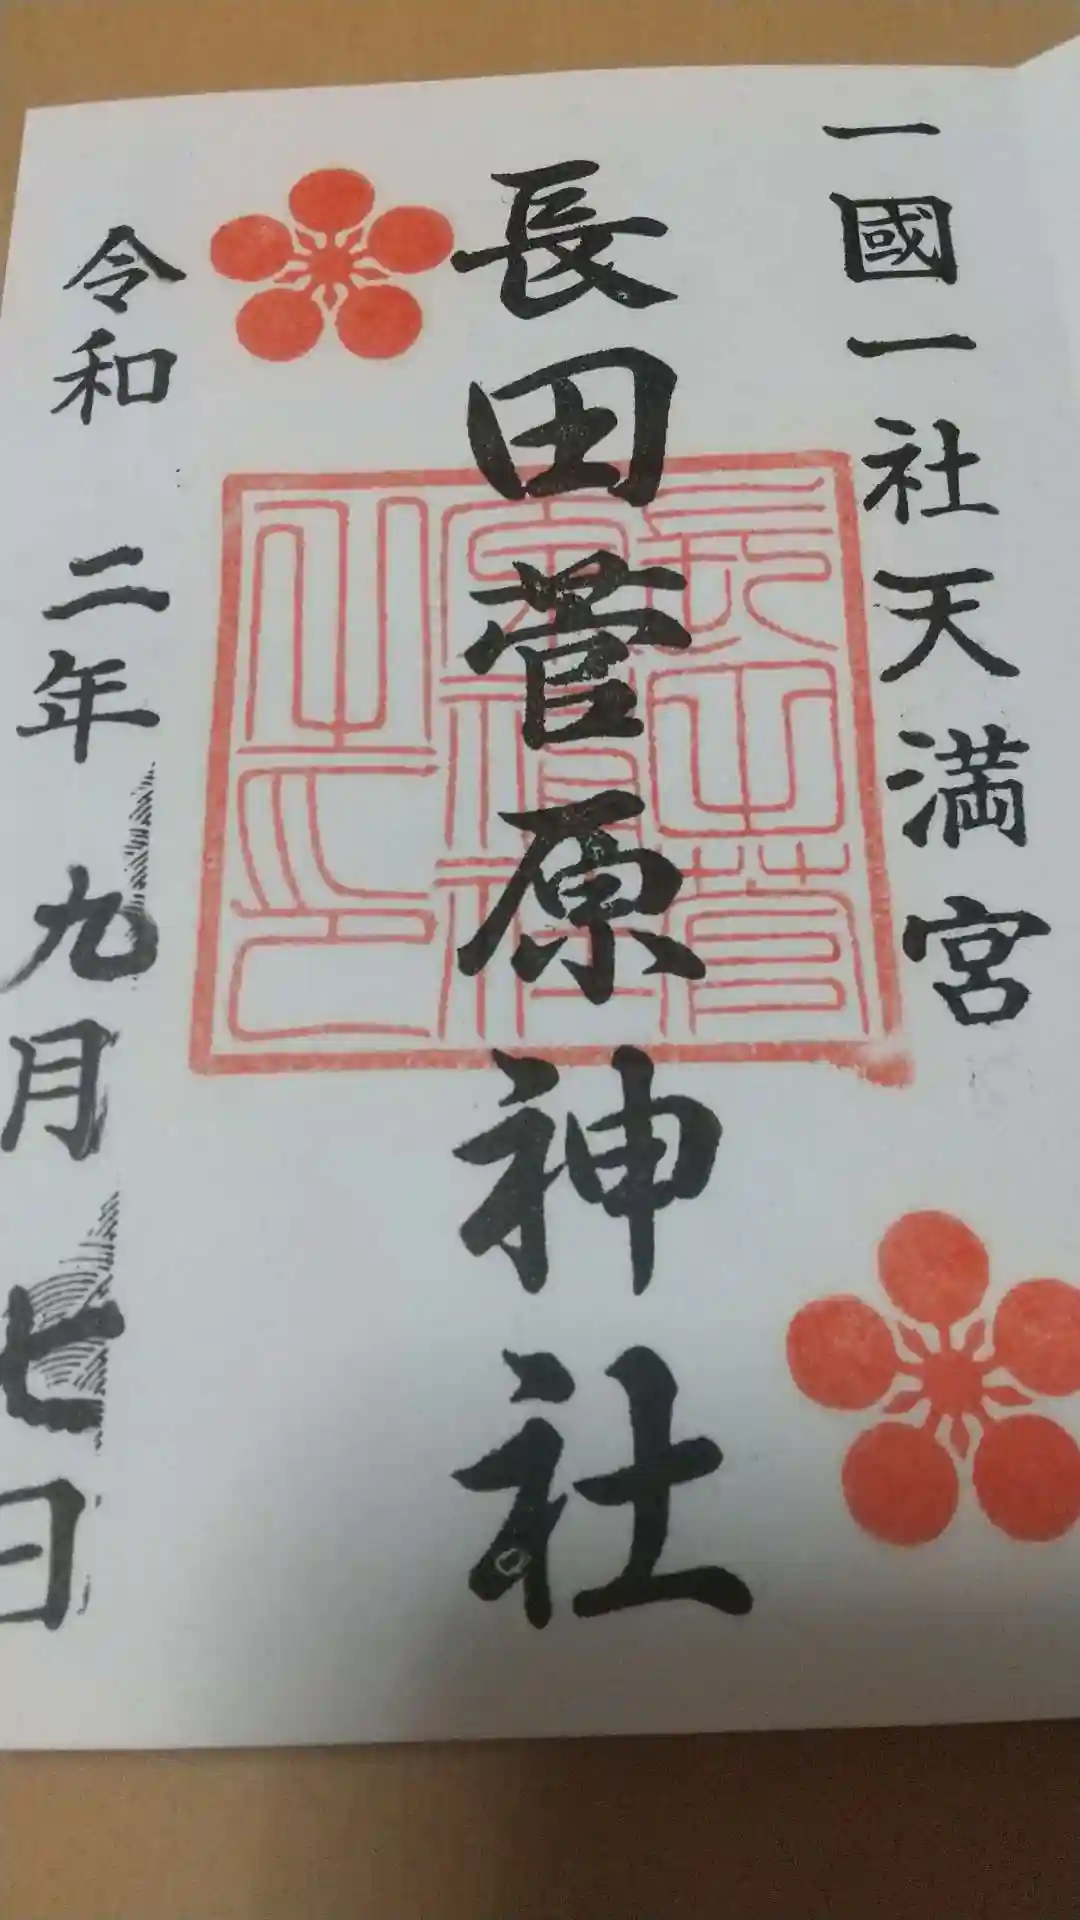 一國一社天満宮
長田菅原神社
令和 二年 九月 七日